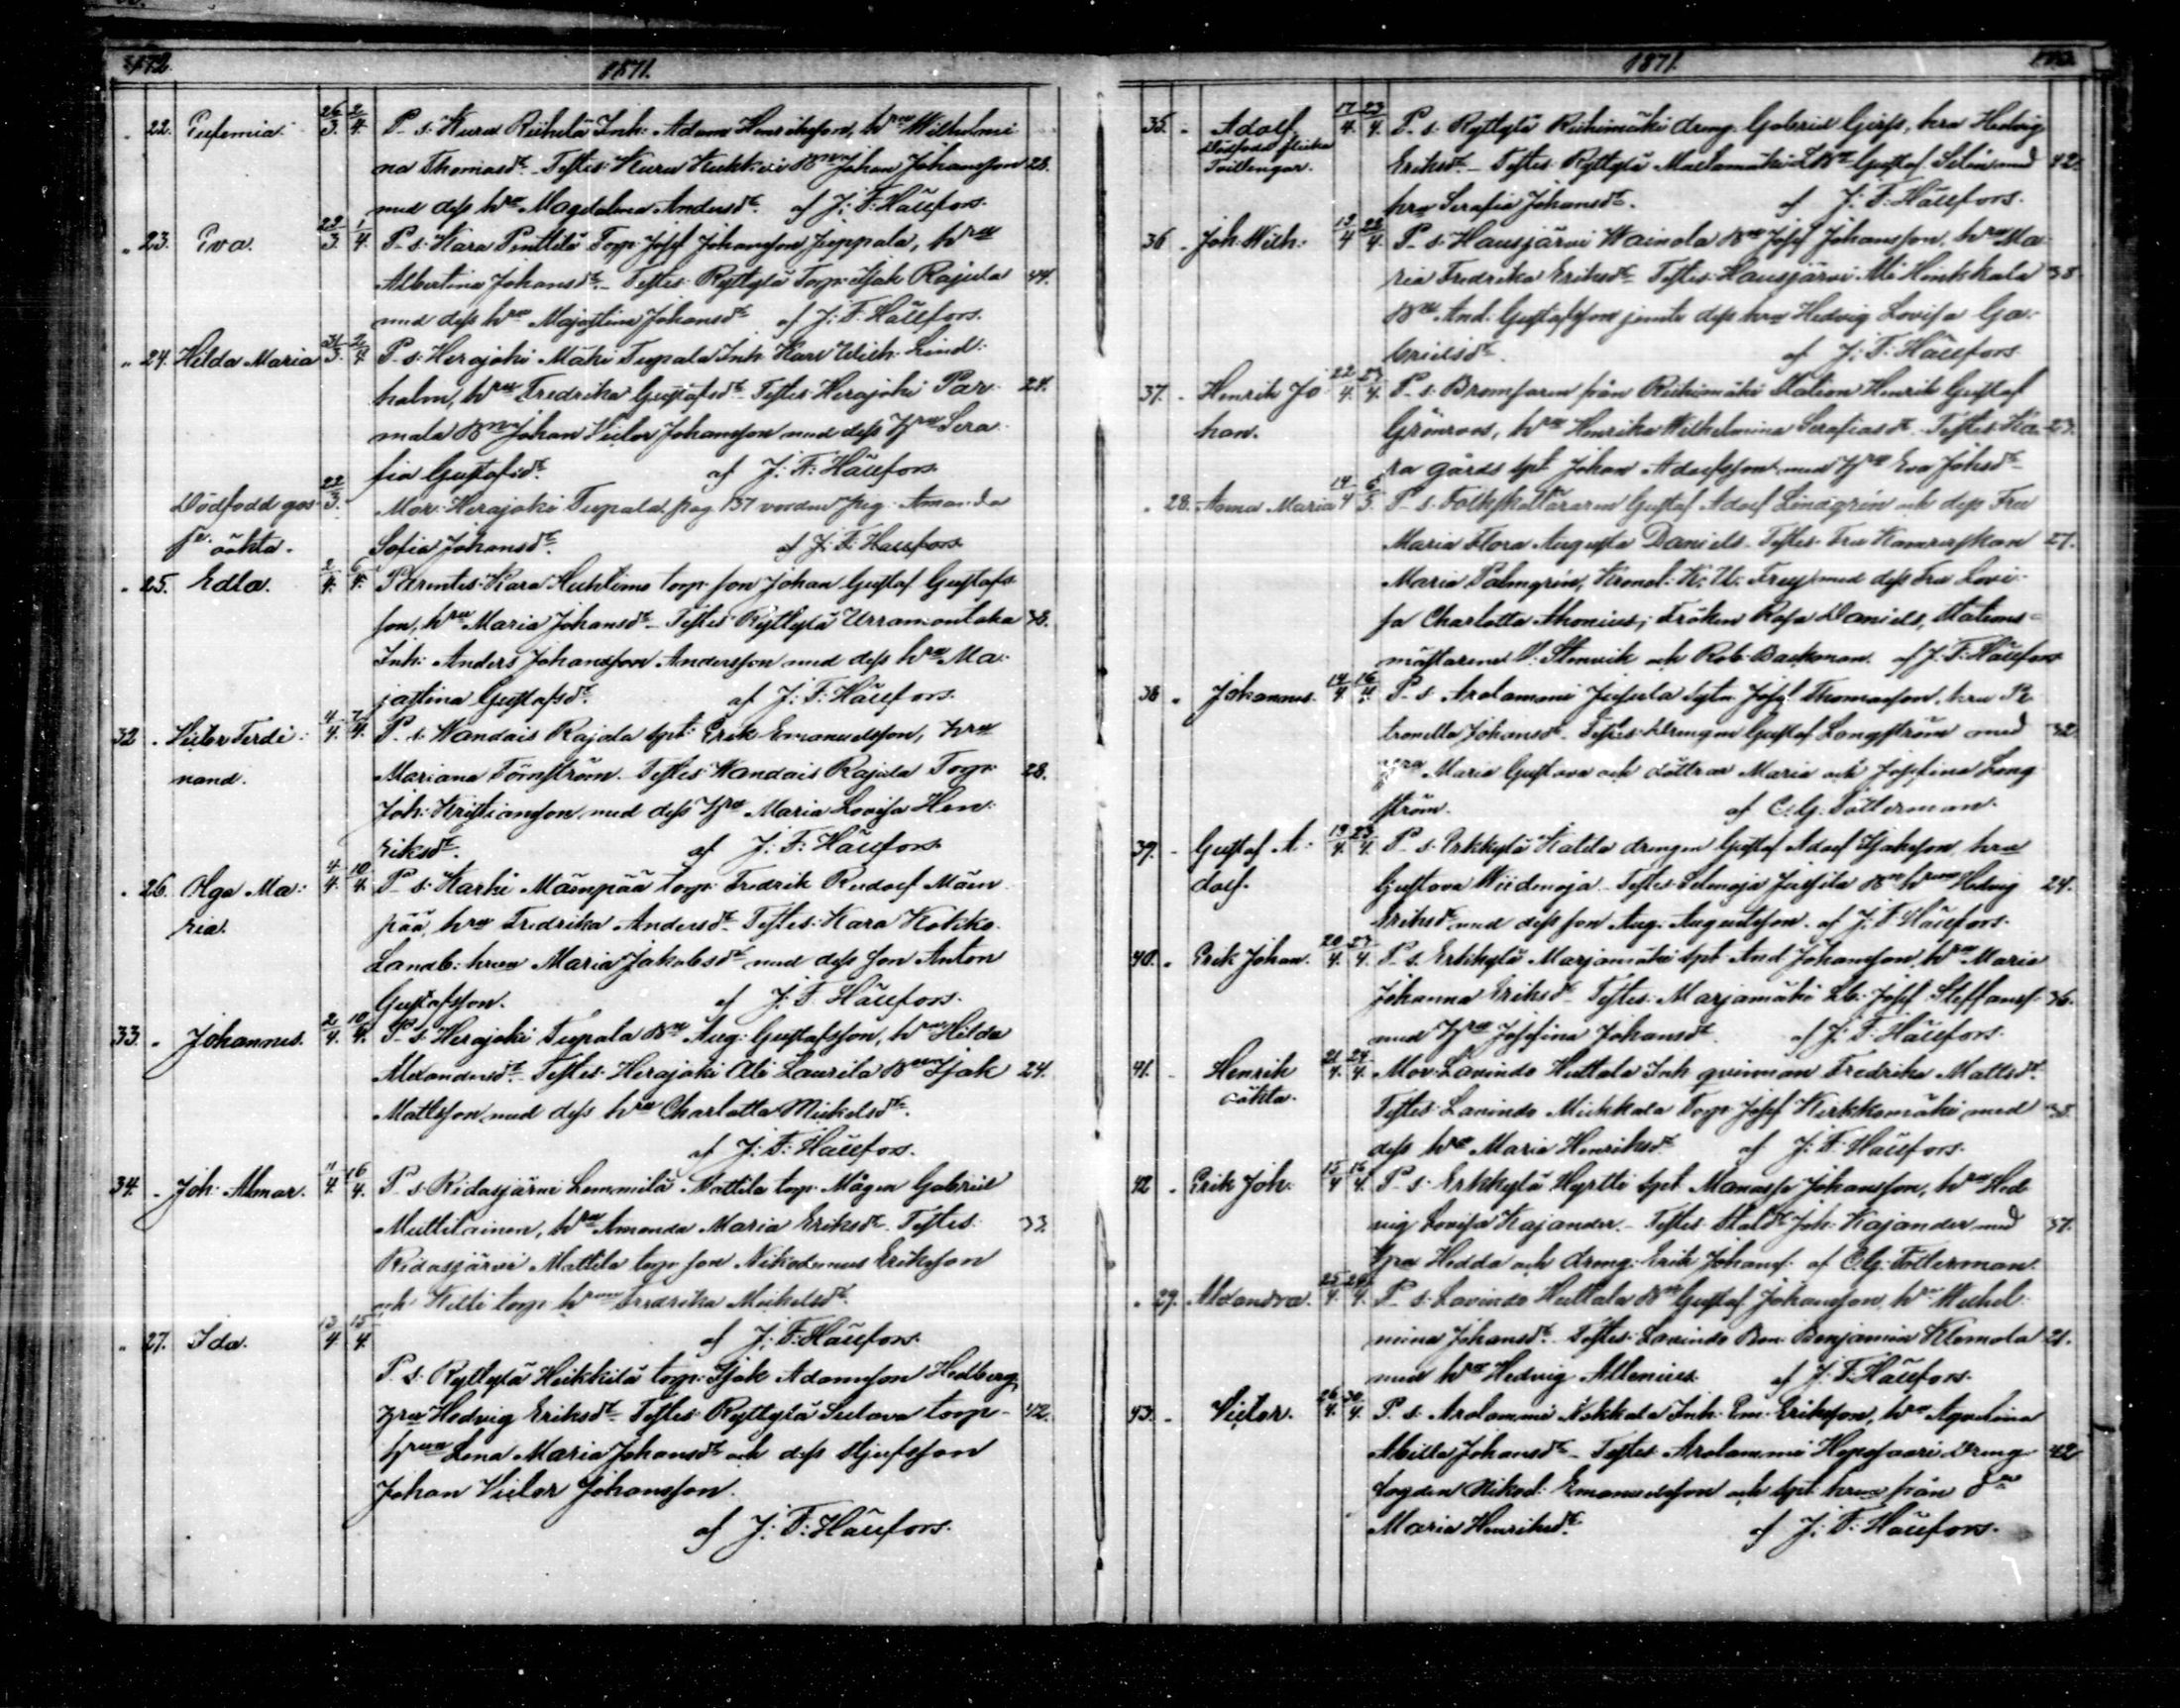 172.
1871.
22. Eufemia. 26/3. 2/4. P. s. Kuru Riihelä Inh. Adam Henriksson, hrun Wilhelmi
na Thomasdr. Testes: Kuru Kukkoi Bn Johan Johansson 28.
med dess hru Magdalena Andersdr. af J: F: Hällfors.
23. Eva. 29/3. 1/4. P. s. Kara Penttilä Torp. Josef Johansson Juppala, hru
Albertina Johansdr. Testes: Ryttylä Torp. Isak Rajula 44.
med dess hru Majastina Johansdr. af J: F: Hällfors.
24. Hilda Maria 31/3. 2/4. P. s. Herajoki Mäki Tupala Inh. Karl Wilh. Lind:
holm, hru Fredrika Gustafsdr. Testes: Herajoki Par 24.
mala Bn Johan Victor Johansson med dess Hru Sera
fia Gustafsdr. af J: F: Hällfors.
Dödfödd gos 22/3. Mor: Herajoki Tupala pag 137 vordne pig. Amanda
se oäkta. Sofia Johansdr. af J: F: Hällfors.
25. Edla. 2/4. 6/4. Parentes: Kara Huhtimo torp. son Johan Gustaf Gustafs
son, hru Maria Johansdr. Testes: Ryttylä Urramontaka 38.
Inh: Anders Johansson Andersson med dess hru Ma:
jastina Gustafsdr. af J: F: Hällfors.
32. Victor Ferdi: 4/4. 7/4. P. s. Wandais Rajala spt: Erik Emanuelsson, hru
nand. Mariana Törnström. Testes: Wandais Rajala Torp. 28.
Joh: Kristiansson med dess Hru Maria Lovisa Hen:
riksdr. af J: F: Hällfors.
26. Olga Ma: 4/4. 10/4. P. s. Karhi Mäenpää torp: Fredrik Rudolf Mäen
ria. pää, hru Fredrika Andersdr. Testes: Kara Kokko
Landb: hrun Maria Jakobsdr med dess son Anton
Gustafsson. af J: F. Hällfors.
33. Johannes. 2/4. 10/4. P. s. Herajoki Tupala Bn Aug: Gustafsson, hru Hilda
Alexandersdr. Testes: Herajoki Ali Laurila Bn Isak 24.
Mattsson med dess hru Charlotta Mickelsdr.
af J: F: Hällfors.
34. Joh: Almar. 11/4. 16/4. P. s. Ridasjärvi Lemmilä Mattila torp. Mågen Gabriel
Multilainen, hru Amanda Maria Eriksdr. Testes: 33.
Ridasjärvi Mattila torp. son Nikodemus Eriksson
och torp. hrun Fredrika Mickelsdr.
27. Ida. 13/4 15/4. af J: F: Hällfors.
P. s. Ryttylä Heikkilä torp: Isak Adamsson Hedberg
hru Hedvig Eriksdr. Testes: Ryttylä torp- 42.
hrun Lena Maria Johansdr och dess styfson
Johan Victor Johansson.
af J: F: Hällfors.
1871.
35. Adolf 17/4. 23/4. P. s. Ryttylä Riihimäki dreng. Gabriel Girss, hru Hedvig
Dödfödd flicka Eriksdr. Testes: Ryttylä Gustaf Selin med 42.
Tvillingar. hru Serafia Johansdr. af J: F: Hällfors.
36. Joh: Wilh: 13/4 22/4. P. s. Hausjärvi Wainola Bn Josef Johansson, hru Ma
ria Fredrika Eriksdr. Testes: Hausjärvi Ali Hinkkala 38
Bn And. Gustafsson jemte dess hru Hedvig Lovisa Ga:
brielsdr. af J: F: Hällfors
37. Henrik Jo 22/4. 23/4. P. s. Bromsaren från Riihimäki Station Henrik Gustaf
han. Grönroos, hru Henrika Wilhelmina Serafiasdr. Testes: Ka- 23.
ra gårds spt. Johan Adolfsson med Hru Eva Johsdr
28. Anna Maria 14/4 6/5. P. s. Folkskolläraren Gustaf Adolf Lindgrén och dess Fru
Maria Flora Augusta Daniels. Testes: Fru Kamrerskan 27.
Maria Palmgrén, Kronol: K. U. Frey med dess Fru Lovi:
sa Charlotta Ahonius, Fröken Rosa Daniels, Stations
mästarene O: Stenvik och Rob: Backman. af J: F: Hällfors
38. Johannes. 14/4 16/4. P. s. Arolammi Jussila Josef Thomasson, hru Pe
tronella Johansdr. Testes: drengen Gustaf Långström med 32
Hru Maria Gustava och döttrar Maria och Josefina Lång
ström. af C: G: Fätterman.
39. Gustaf A: 19/4. 23/4. P. s. Erkkylä Katila drengen Gustaf Adolf Isaksson, hru
dolf. Gustava Wiidenoja. Testes: Selmoja Jussila Bn hrun Hedvig 24.
Eriksdr med dess son Aug. Augustsson. af J: F: Hällfors.
40. Erik Johan. 20/4. 27/4. P. s. Erkkylä Marjamäki spt. And. Johansson, hru Maria
Johanna Eriksdr. Testes: Marjamäki Lb: Josef Steffanss. 36.
med Hru Josefina Johansdr. af J: F: Hällfors.
41. Henrik 21/4. 24/4. Mor: Lavindo Huttala Inh qvinnan Fredrika Mattsdr.
oäkta. Testes: Lavindo Mickkala Torp. Josef Kirkkomäki med 38
dess hru Maria Henriksdr af J: F: Hällfors.
42. Erik Joh: 15/4 16/4. P. s. Erkkylä Hyrtti spt. Manasse Johansson, hru Hed
vig Lovisa Kajander. Testes: Joh: Kajander med 37.
Hru Hedda och dreng: Erik Johans. af C: G: Fätterman.
29. Alexandra. 25/4. 29/4. P. s. Lavindo Huttala Bn Gustaf Johansson, hru Wilhel
mina Johansdr. Testes: Lavindo Bon. Benjamin Klemola 21.
med hru Hedvig Allenius. af J: F: Hällfors.
43. Victor. 26/4. 30/4. P. s. Arolammi Nokkala Inh: Em: Eriksson, hru Agnetina
Milla Johansdr. Testes: Arolammi Hopesaari Dreng 42
fogden Nikod: Emanuelsson och spt. hrun från d:o
Maria Henriksdr. af J: F: Hällfors.